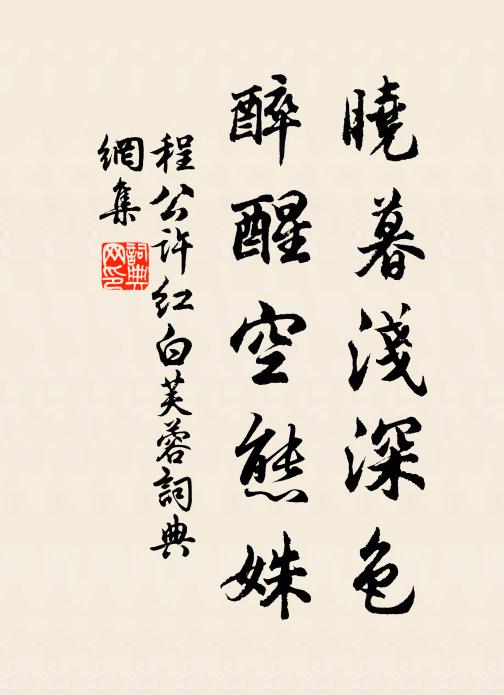 曉暮淺深色
醉醒空態姝
程公許紅白芙蓉詞典
網集
詞典網印